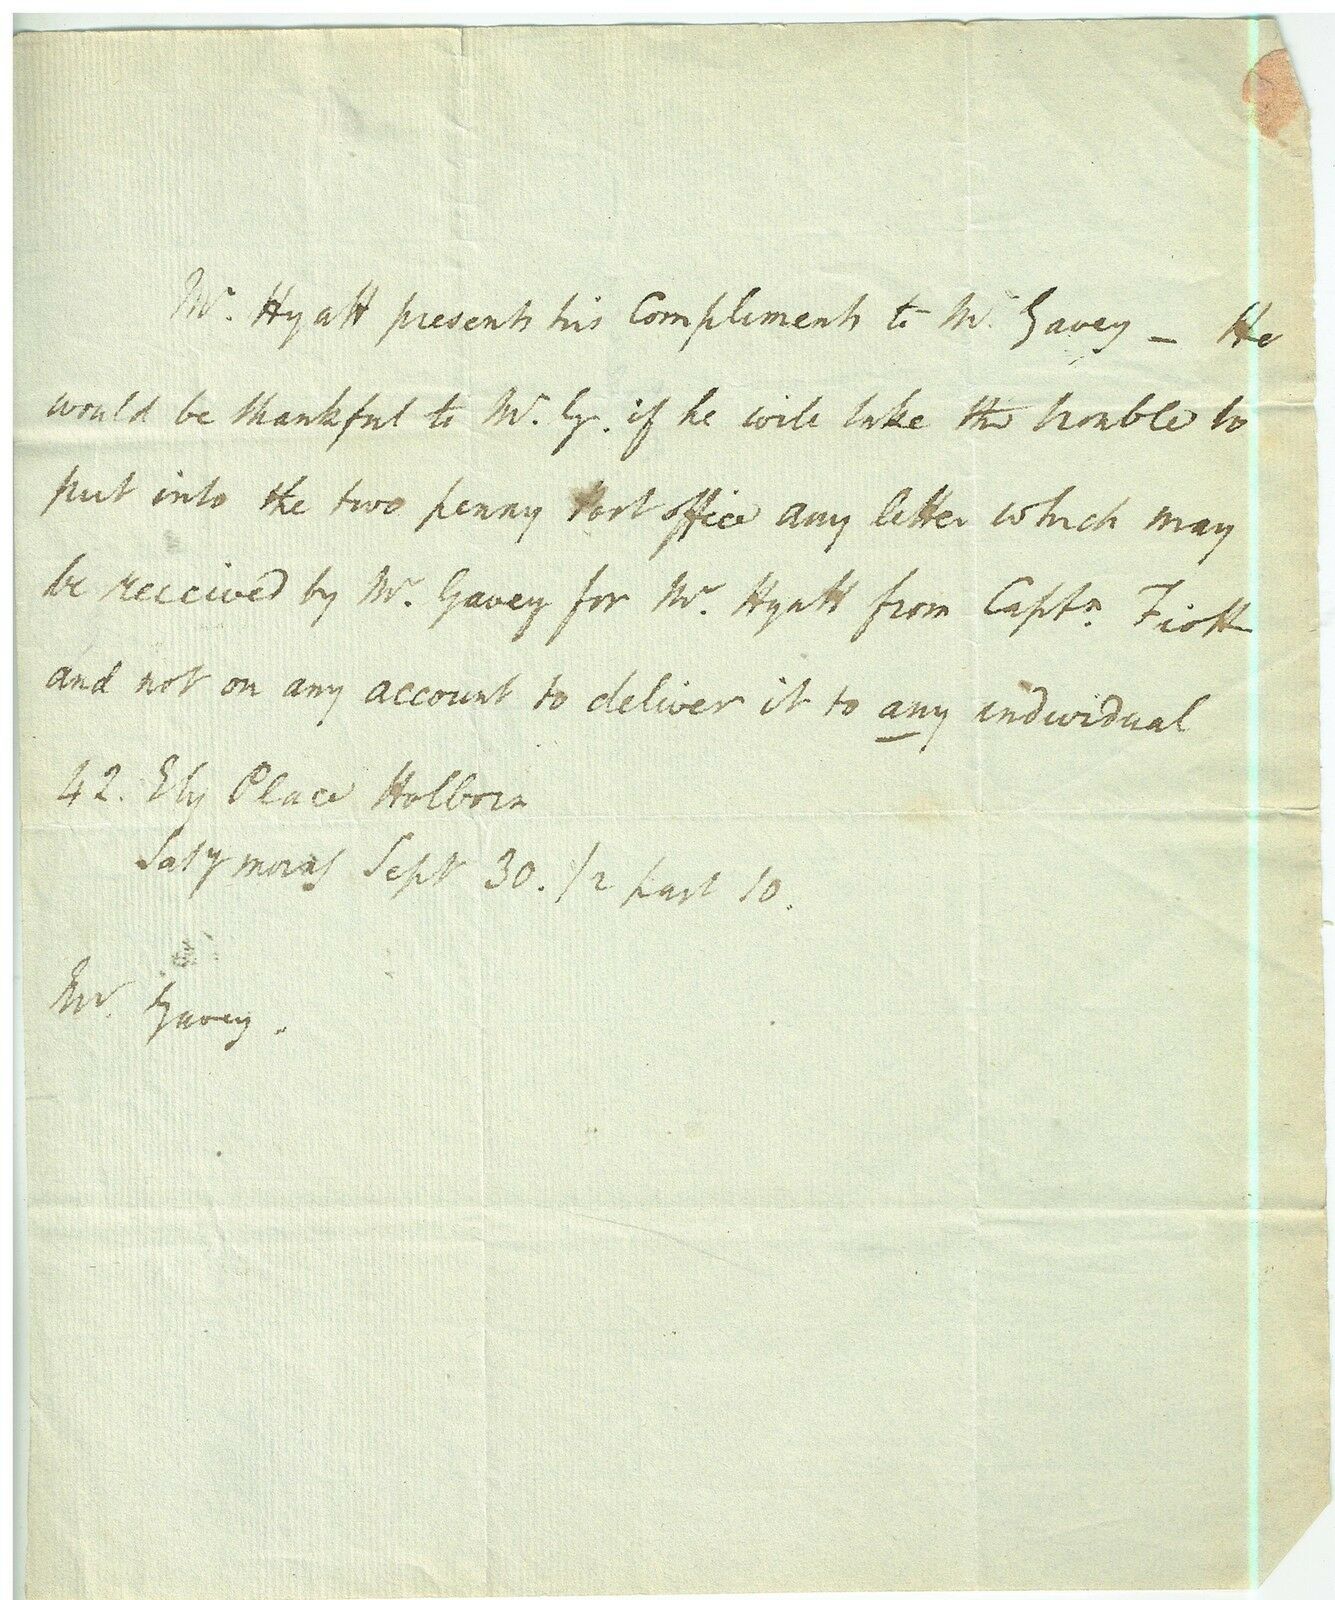 Mr. Hyatt presents his Compliments to Mr. Gavey _ He
would be thankful to Mr. G. if he will take the trouble to
put into the two penny Post office any letter which may
be received by Mr. Gavey for Mr. Hyatt from Captn. Fiott
and not on any account to deliver it to any individual
42. Ely Place Holborn
Saty morng Sept 30. 1/2 past 10.
Mr. Gavey.